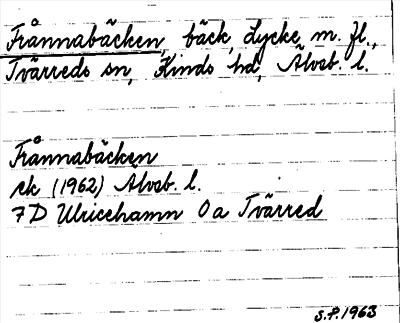 Frånnabäcken, bäck, Lycke, m. fl.,
Tvärreds sn, Kinds hd, Älvsb. l.
Frånnabäcken
ek (1962) Älvsb. l.
7D Ulricehamn 0a Tvärred
S.P. 1963